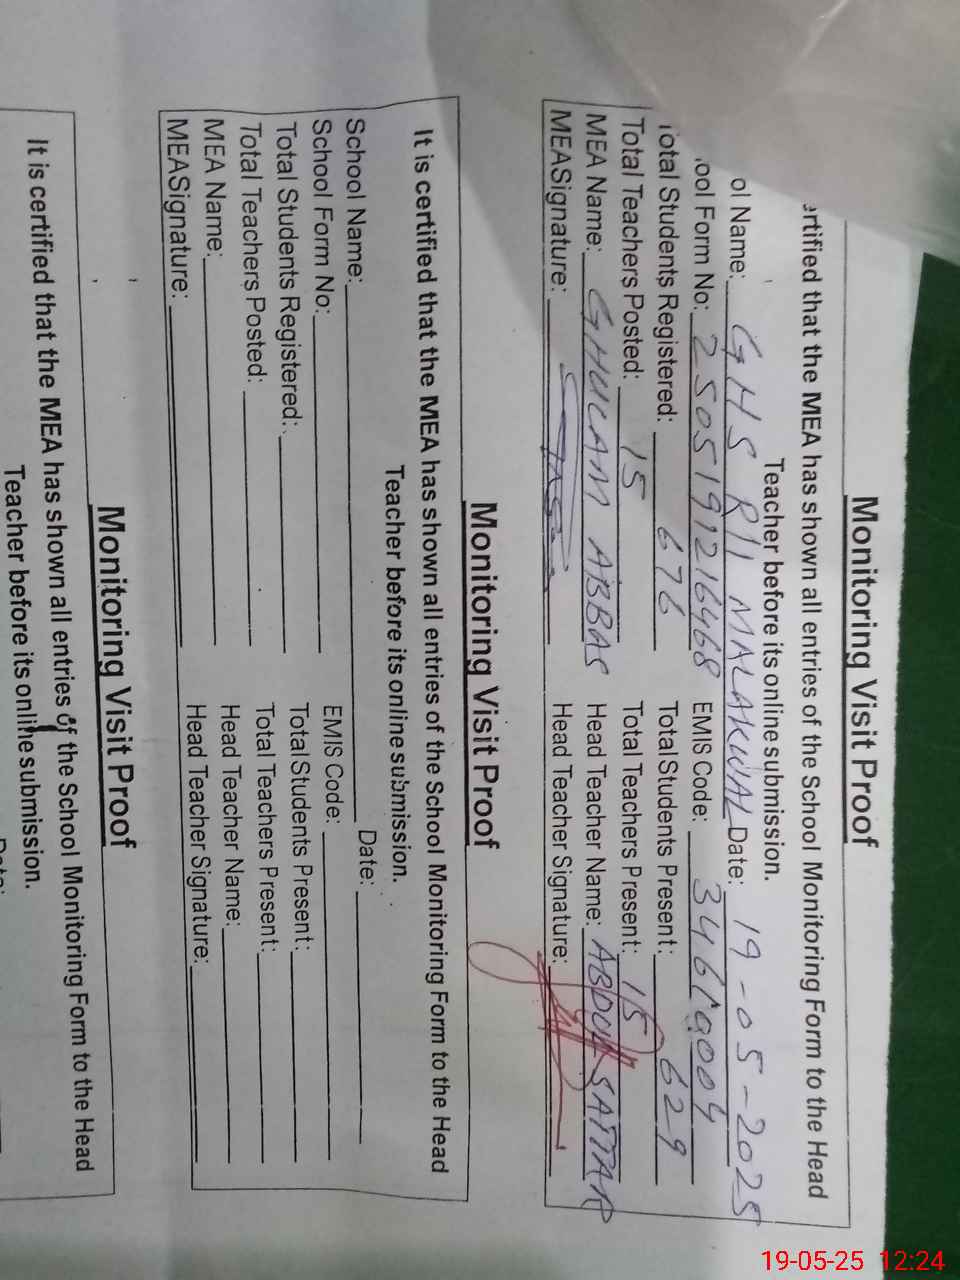 Monitoring Visit Proof
ertified that the MEA has shown all entries of the School Monitoring Form to the Head
Teacher before its online submission.
ol Name: GHS R11 MALAKWAL Date: 19-05-2025
ool Form No: 2505191216468 EMIS Code:
otal Students Registered: 676 Total Students Present: 629
Total Teachers Posted: 15 Total Teachers Present: 15
MEA Name: GHULAM ABBAS Head Teacher Name: ABDUL SATTAR
MEASignature: Head Teacher Signature:
Monitoring Visit Proof
It is certified that the MEA has shown all entries of the School Monitoring Form to the Head
Teacher before its online submission.
School Name: Date:
School Form No: EMIS Code:
Total Students Registered: Total Students Present:
Total Teachers Posted: Total Teachers Present:
MEA Name: Head Teacher Name:
MEASignature: Head Teacher Signature:
Monitoring Visit Proof
It is certified that the MEA has shown all entries of the School Monitoring Form to the Head
Teacher before its online submission.
19-05-25 12:24